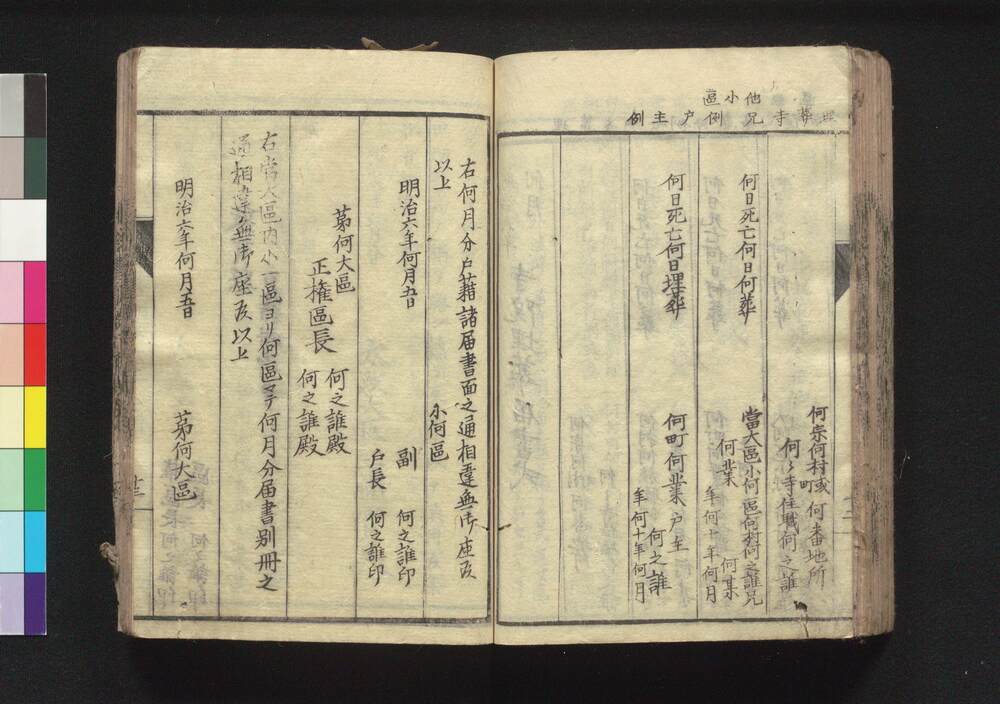 葬寺
他小區
兄例
戸主例
何宗何村或町何番地所
何々寺住職何之誰
何日死亡何日何葬
當大區小何區何村何之誰兄
何業
何某
年何十年何月
何日死亡何日埋葬
何町何業戸主
何之誰
年何十年何月
右何月分戸藉諸届書面之通相違無御座候
以上
小何區
明治六年何月五日
副
戸長
何之誰印
何之誰印
苐何大區
正権區長
何之誰殿
何之誰殿
右當大區内小一區ヨリ何區マテ何月分届書別冊之
通相違無御座候以上
明治六年何月五日
苐何大區